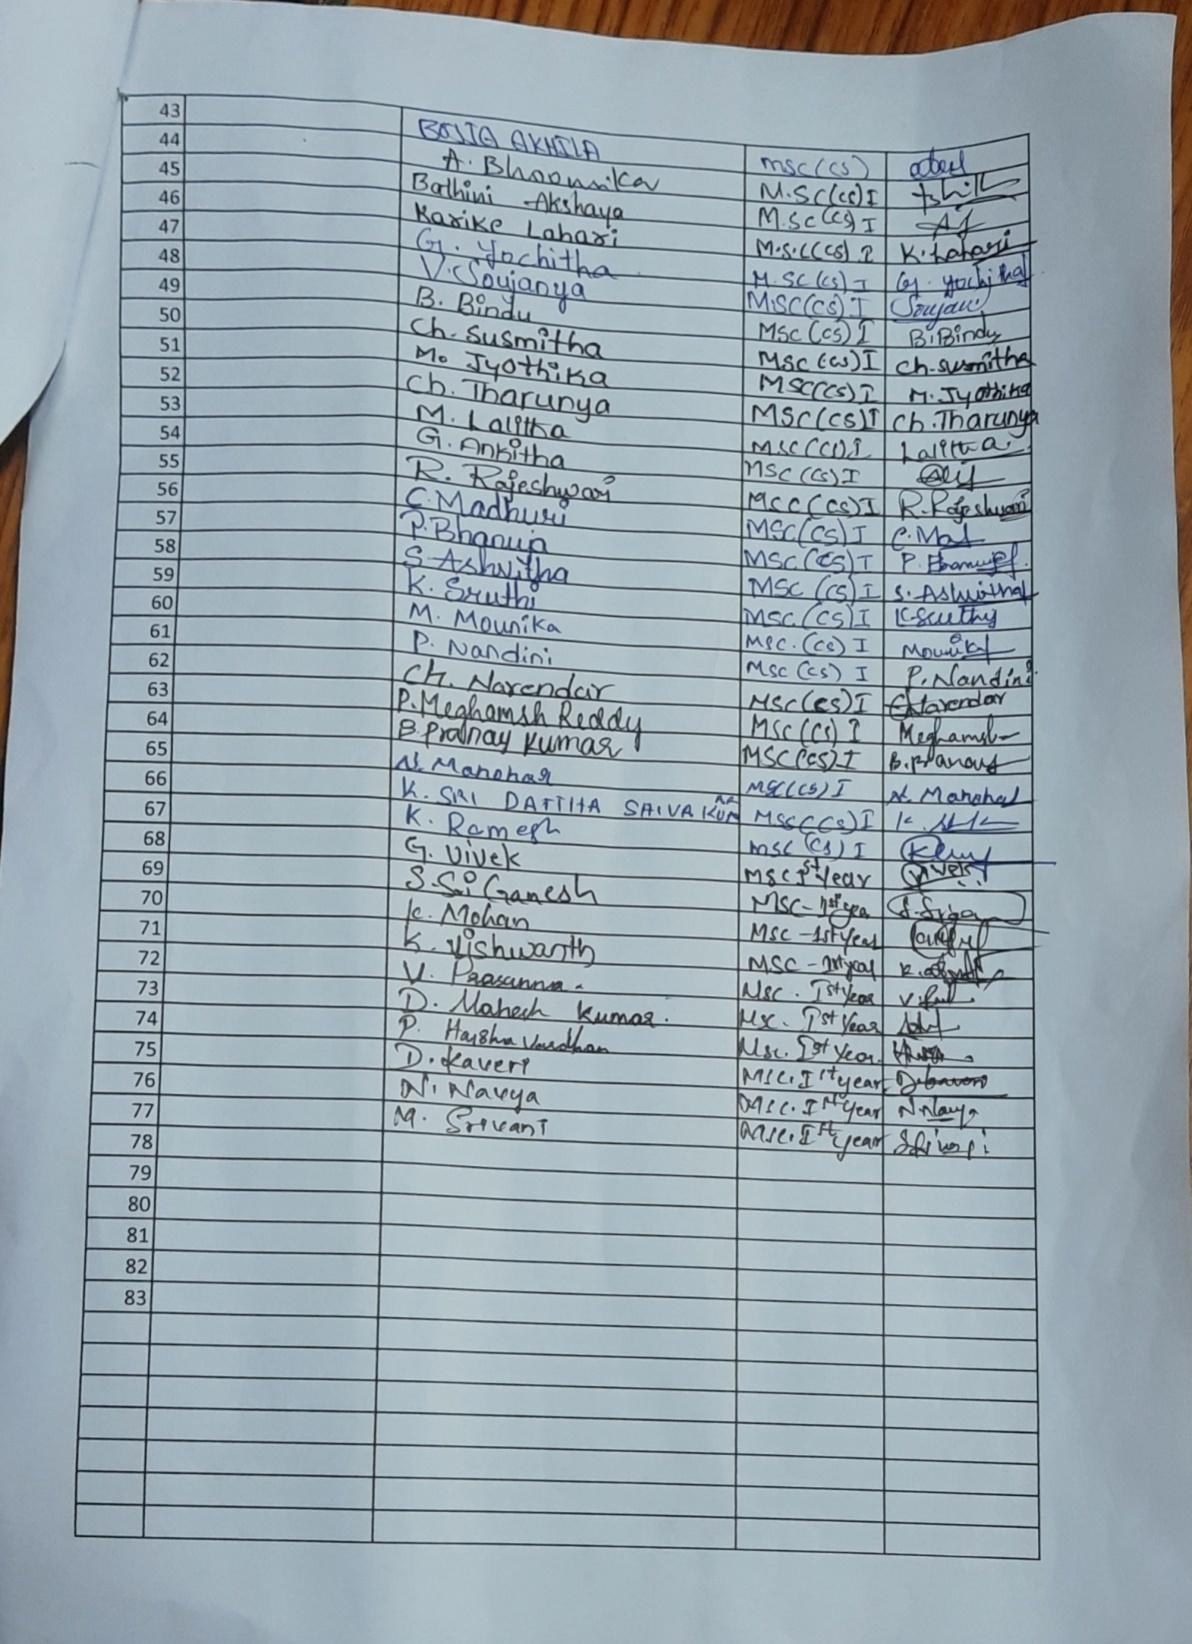 43 BOJJA AKHILA MSC(CS)
44 A. Bhoomika M.SC(CS) I
45 Bathini Akshaya M.SC(CS) I
46 Karike Lahari M.S.C(CS) I K. Lahari
47 G. Yochitha M.SC(CS) I G. Yochitha
48 V. Soujanya MSC(CS) I
49 B. Bindu MSC(CS) I B. Bindu
50 Ch. Susmitha MSC(CS) I Ch. Susmitha
51 M. Jyothika MSC(CS) I M. Jyothika
52 Ch. Tharunya MSC(CS) I Ch. Tharunya
53 M. Lalitha MSC(CS) I Lalitha
54 G. Ankitha MSC(CS) I
55 R. Rajeshwari MSC(CS) I R. Rajeshwari
56 C. Madhuri MSC(CS) I
57 P. Bhanuja MSC(CS) I
58 S Ashritha MSC(CS) I S. Ashritha
59 K. Sruthi MSC(CS) I
60 M. Mounika MSC.(CS) I
61 P. Nandini MSC(CS) I P. Nandini
62 Ch. Narendar MSC(CS) I Ch Narendar
63 P. Meghamsh Reddy MSC(CS) I Meghamsh
64 B. Pranay Kumar MSC(CS) I
65 N. Manohar MSC(CS) I
66 K. SRI DATTHA SAIVA KUMAR MSC(CS) I
67 K. Ramesh MSC(CS) I
68 G. Vivek MSC Ist year
69 S. Sai Ganesh MSC-1st year
70 K. Mohan MSC-1st year
71 K. Vishwanth MSC-1st year
72 V. Prasanna. MSC. Ist year
73 D. Mahesh Kumar. MSC. Ist year
74 P. Harsha Vardhan MSC. Ist year
75 D. Kaveri MSC. Ist year
76 N. Navya MSC. Ist year N. Navya
77 M. Srivani MSC. Ist year
78
79
80
81
82
83